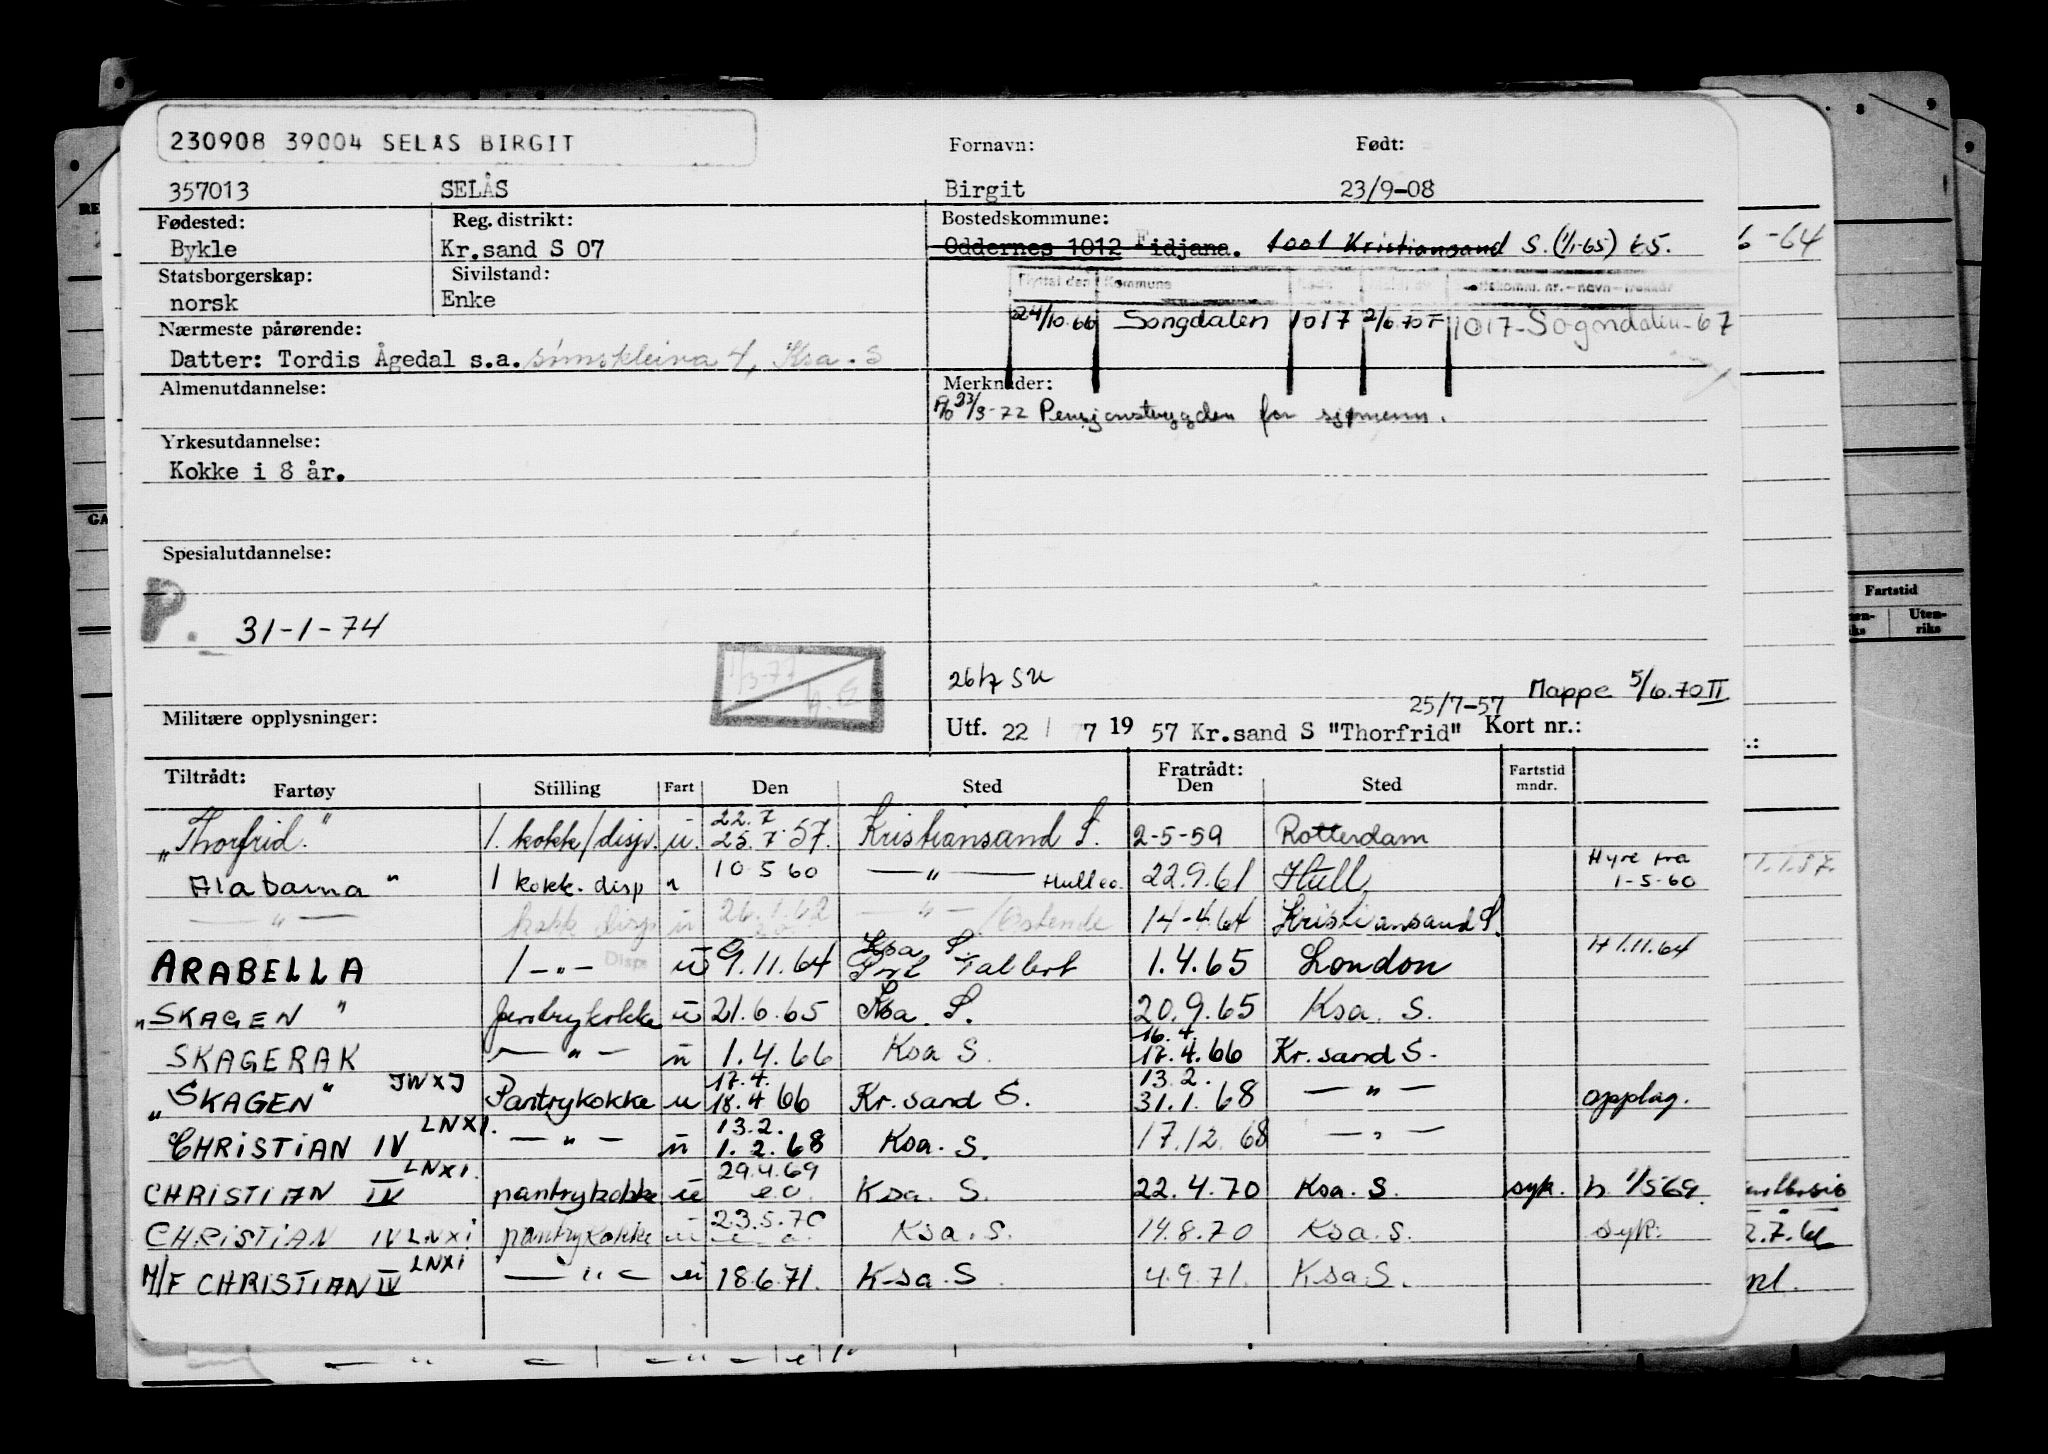 230908 39004 SELÅS BIRGIT
Fornavn: Født:
357013 SELÅS Birgit 23/9-08
Fødested: Reg. distrikt: Bostedskommune:
Bykle Kr.sand S 07 Oddernes 1012 Fidjana. 1001 Kristiansand S. (1/1-65) t5. 6-64
Statsborgerskap: Sivilstand:
norsk Enke
Flyttet den Kommune
24/10.66 Songdalen 1017 2/6.70 F 1017-Sogndalen-67
Nærmeste pårørende:
Datter: Tordis Ågedal s.a. 4, Ksa. S
Almenutdannelse: Merknader:
23/3-72 Pensjonstrygden for sjømenn.
Yrkesutdannelse:
Kokke i 8 år.
Spesialutdannelse:
P. 31-1-74
1/3-77
26/7 SU
25/7-57 Mappe 5/6.70 II
Militære opplysninger: Utf. 22 / 7 19 57 Kr.sand S "Thorfrid" Kort nr.:
Tiltrådt: Fratrådt: Fartstid
Fartøy Stilling Fart Den Sted Den Sted mndr.
22.7
„Thorfrid." 1. kokk/disp. u. 25.7.57. Kristiansand S. 2-5-59 Rotterdam
Alabama " 1 kokk. disp u 10 5 60 — " — Hull eo. 22.9.61 Hull, Hyre fra 1-5-60 1.1.57.
— " — kokk disp u 26.1.62 — " — /Ostende 14-4.64 Kristiansand S.
Ksa S.
ARABELLA 1 - " - Disp u 9.11.64 1.4.65 London H 1.11.64
„SKAGEN " u 21.6.65 Ksa. S. 20.9.65 Ksa. S.
16.4.
SKAGERAK — " — u 1.4.66 Ksa S. 17.4.66 Kr.sand S.
JWXJ 17.4. 13.2.
„SKAGEN" Pantrykokke u 18.4 66 Kr.sand S. 31.1.68 — " — opplag.
LNXI. 13.2.
CHRISTIAN IV — " — u 1.2.68 Ksa. S. 17.12.68 — " —
LNXI. 29.4.69
CHRISTIAN IV pantrykokke u e o. Ksa. S. 22.4.70 Ksa. S. syk. h 1/5 69.
23.5.70
CHRISTIAN IV LNXI pantrykokke u Ksa. S. 19.8.70 Ksa. S. syk. 2.7.66
LNXI
M/F CHRISTIAN IV — " — u 18.6.71. Ksa. S 4.9.71. Ksa S.
Fartstid
Uten-
riks